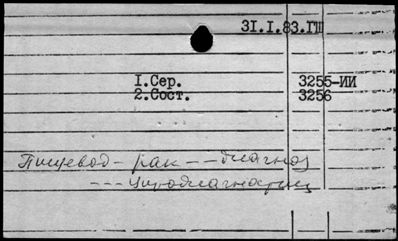 31.I.83.ГШ
I.Сер. 3255-ИИ
2.Сост. 3256
Пищевод - рак -- диагноз
--- цитодиагностика